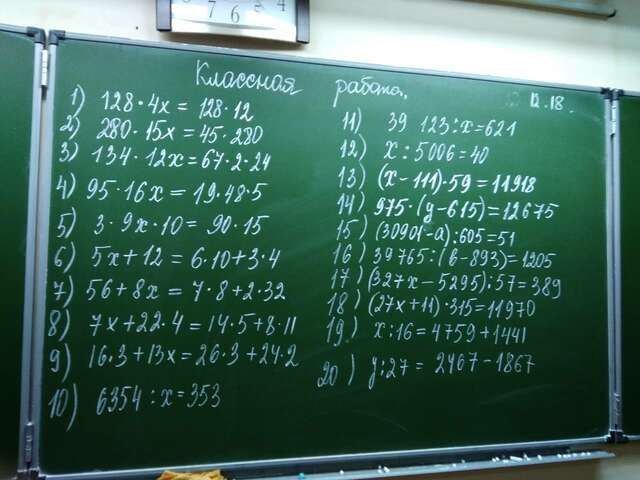 7 6 5 4
Классная работа.
12.18.
1) 128·4x = 128·12
2) 280·15x = 45·280
3) 134·12x = 67·2·24
4) 95·16x = 19·48·5
5) 3·9x·10 = 90·15
6) 5x+12 = 6·10+3·4
7) 56+8x = 7·8+2·32
8) 7x+22·4 = 14·5+8·11
9) 16·3+13x = 26·3+24·2
10) 6354:x=353
11) 39 123:x=621
12) x:5006=40
13) (x-111)·59=11918
14) 975·(y-615)=12675
15) (30901-a):605=51
16) 39765:(b-893)=1205
17) (327x-5295):57=389
18) (27x+11)·315=11970
19) x:16=4759+1441
20) y:27= 2467-1867